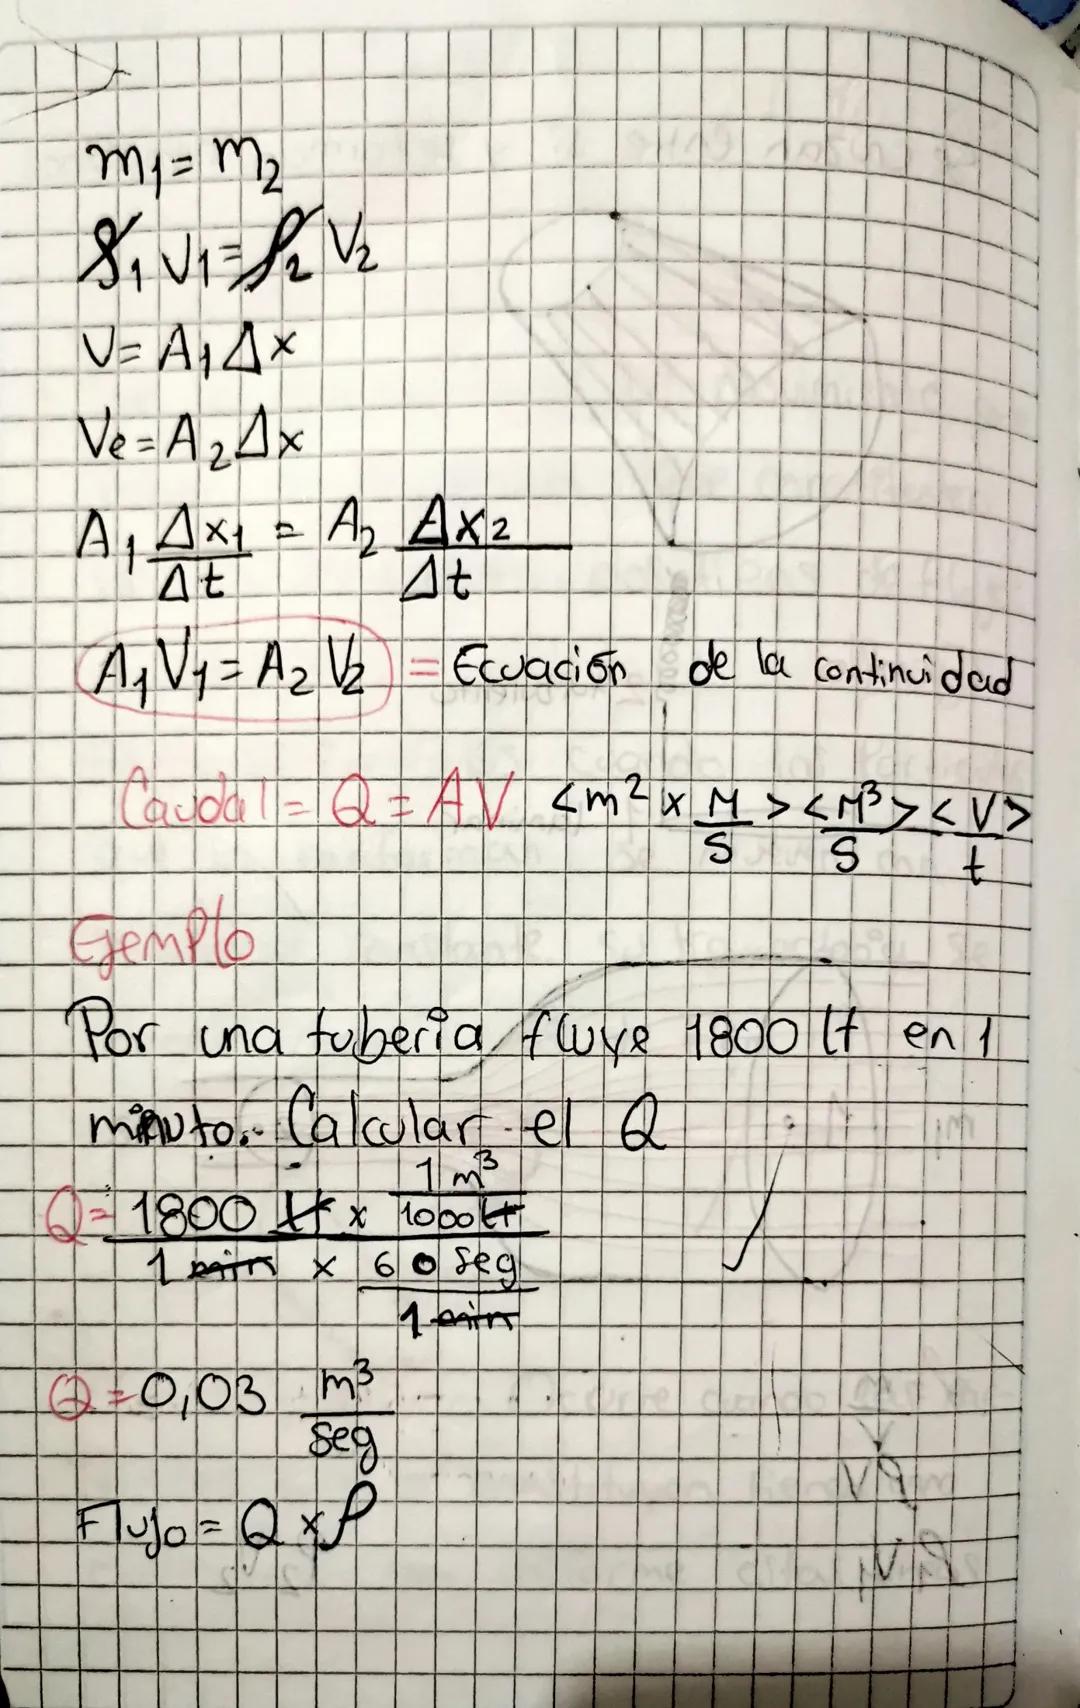 m₁ = m₂
ρ₁ V₁ = ρ₂ V₂
V = A₁ Δx
Ve = A₂ Δx
A₁ Δx₁/Δt = A₂ Δx₂/Δt
A₁ V₁ = A₂ V₂ = Ecuación de la continuidad
Caudal = Q = AV <m² x M/S> <M³/S> <V/t>
Ejemplo
Por una tuberia fluye 1800 lt en 1
minuto. Calcular el Q
Q = (1800 lt x 1 m³/1000 lt) / (1 min x 60 seg/1 min)
Q = 0,03 m³/seg
Flujo = Q x ρ